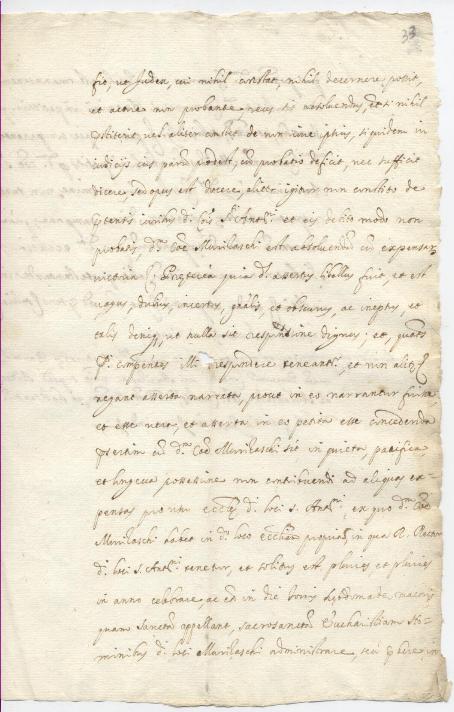 33
fit, ut Judex, cui nihil constat, nihil decernere possit,
et actore non probante reus sit absolvendus, etsi nihil
pstiterit, vel aliter constet de non iure ipsius, siquidem in
iudicijs eius parum prodest, cum probatio deficit, nec sufficit
dicere, sed opus est docere, aliter igitur non constito de
iuribus d. S. Ant. et eis debito modo non
probatis, d. Coe Murilaschi est absolvendum cum expensar
victoria quia d. assertus libellus fuit, et est
vagus, dubius, incertus, gnalis, et obscurus, ac ineptus, et
talis deniq, ut nulla sit responsione dignus; et, quatenus
illi respondere teneant, et non aliter
negant asserta narrata, prout in eo narrantur fuisse,
et esse vera, et asserta in eo petita esse concedenda
psertim cum d. Coe Murilaschi sit in quieta, pacifica
et longeva possessione non contribuendi ad aliquas ex-
pensas pro d. loci S. Ant., ex quo d. Coe
Murilaschi habet in d. loco in qua R. Rector
d. loci S. Ant. tenetur, et solitus est pluries, et pluries
in anno celebrare, ac in die hebdomadae maioris
quam Sanctam appellant, sacrosanctam Eucharistiam
minibus d. loci Murilaschi administrare, seu in